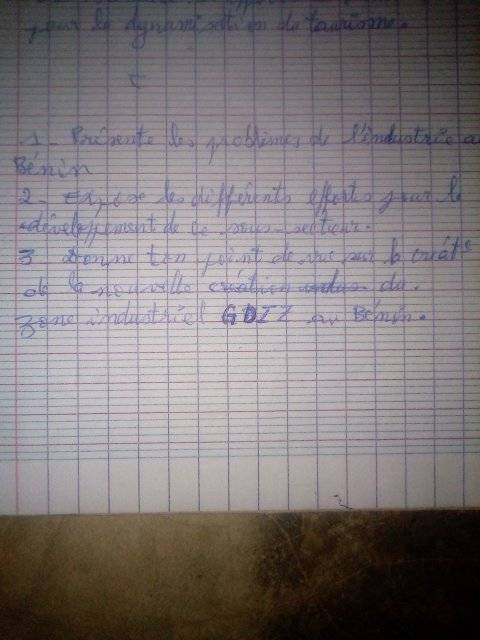 pour la dynamisation de tourisme.
1 - Présente les problèmes de l'industrie au
Bénin
2 - Expose les différents efforts pour le
développement de ce sous-secteur.
3 Donne ton point de vue sur la créat°
de la nouvelle création indus du
zone industriel GDIZ au Bénin.